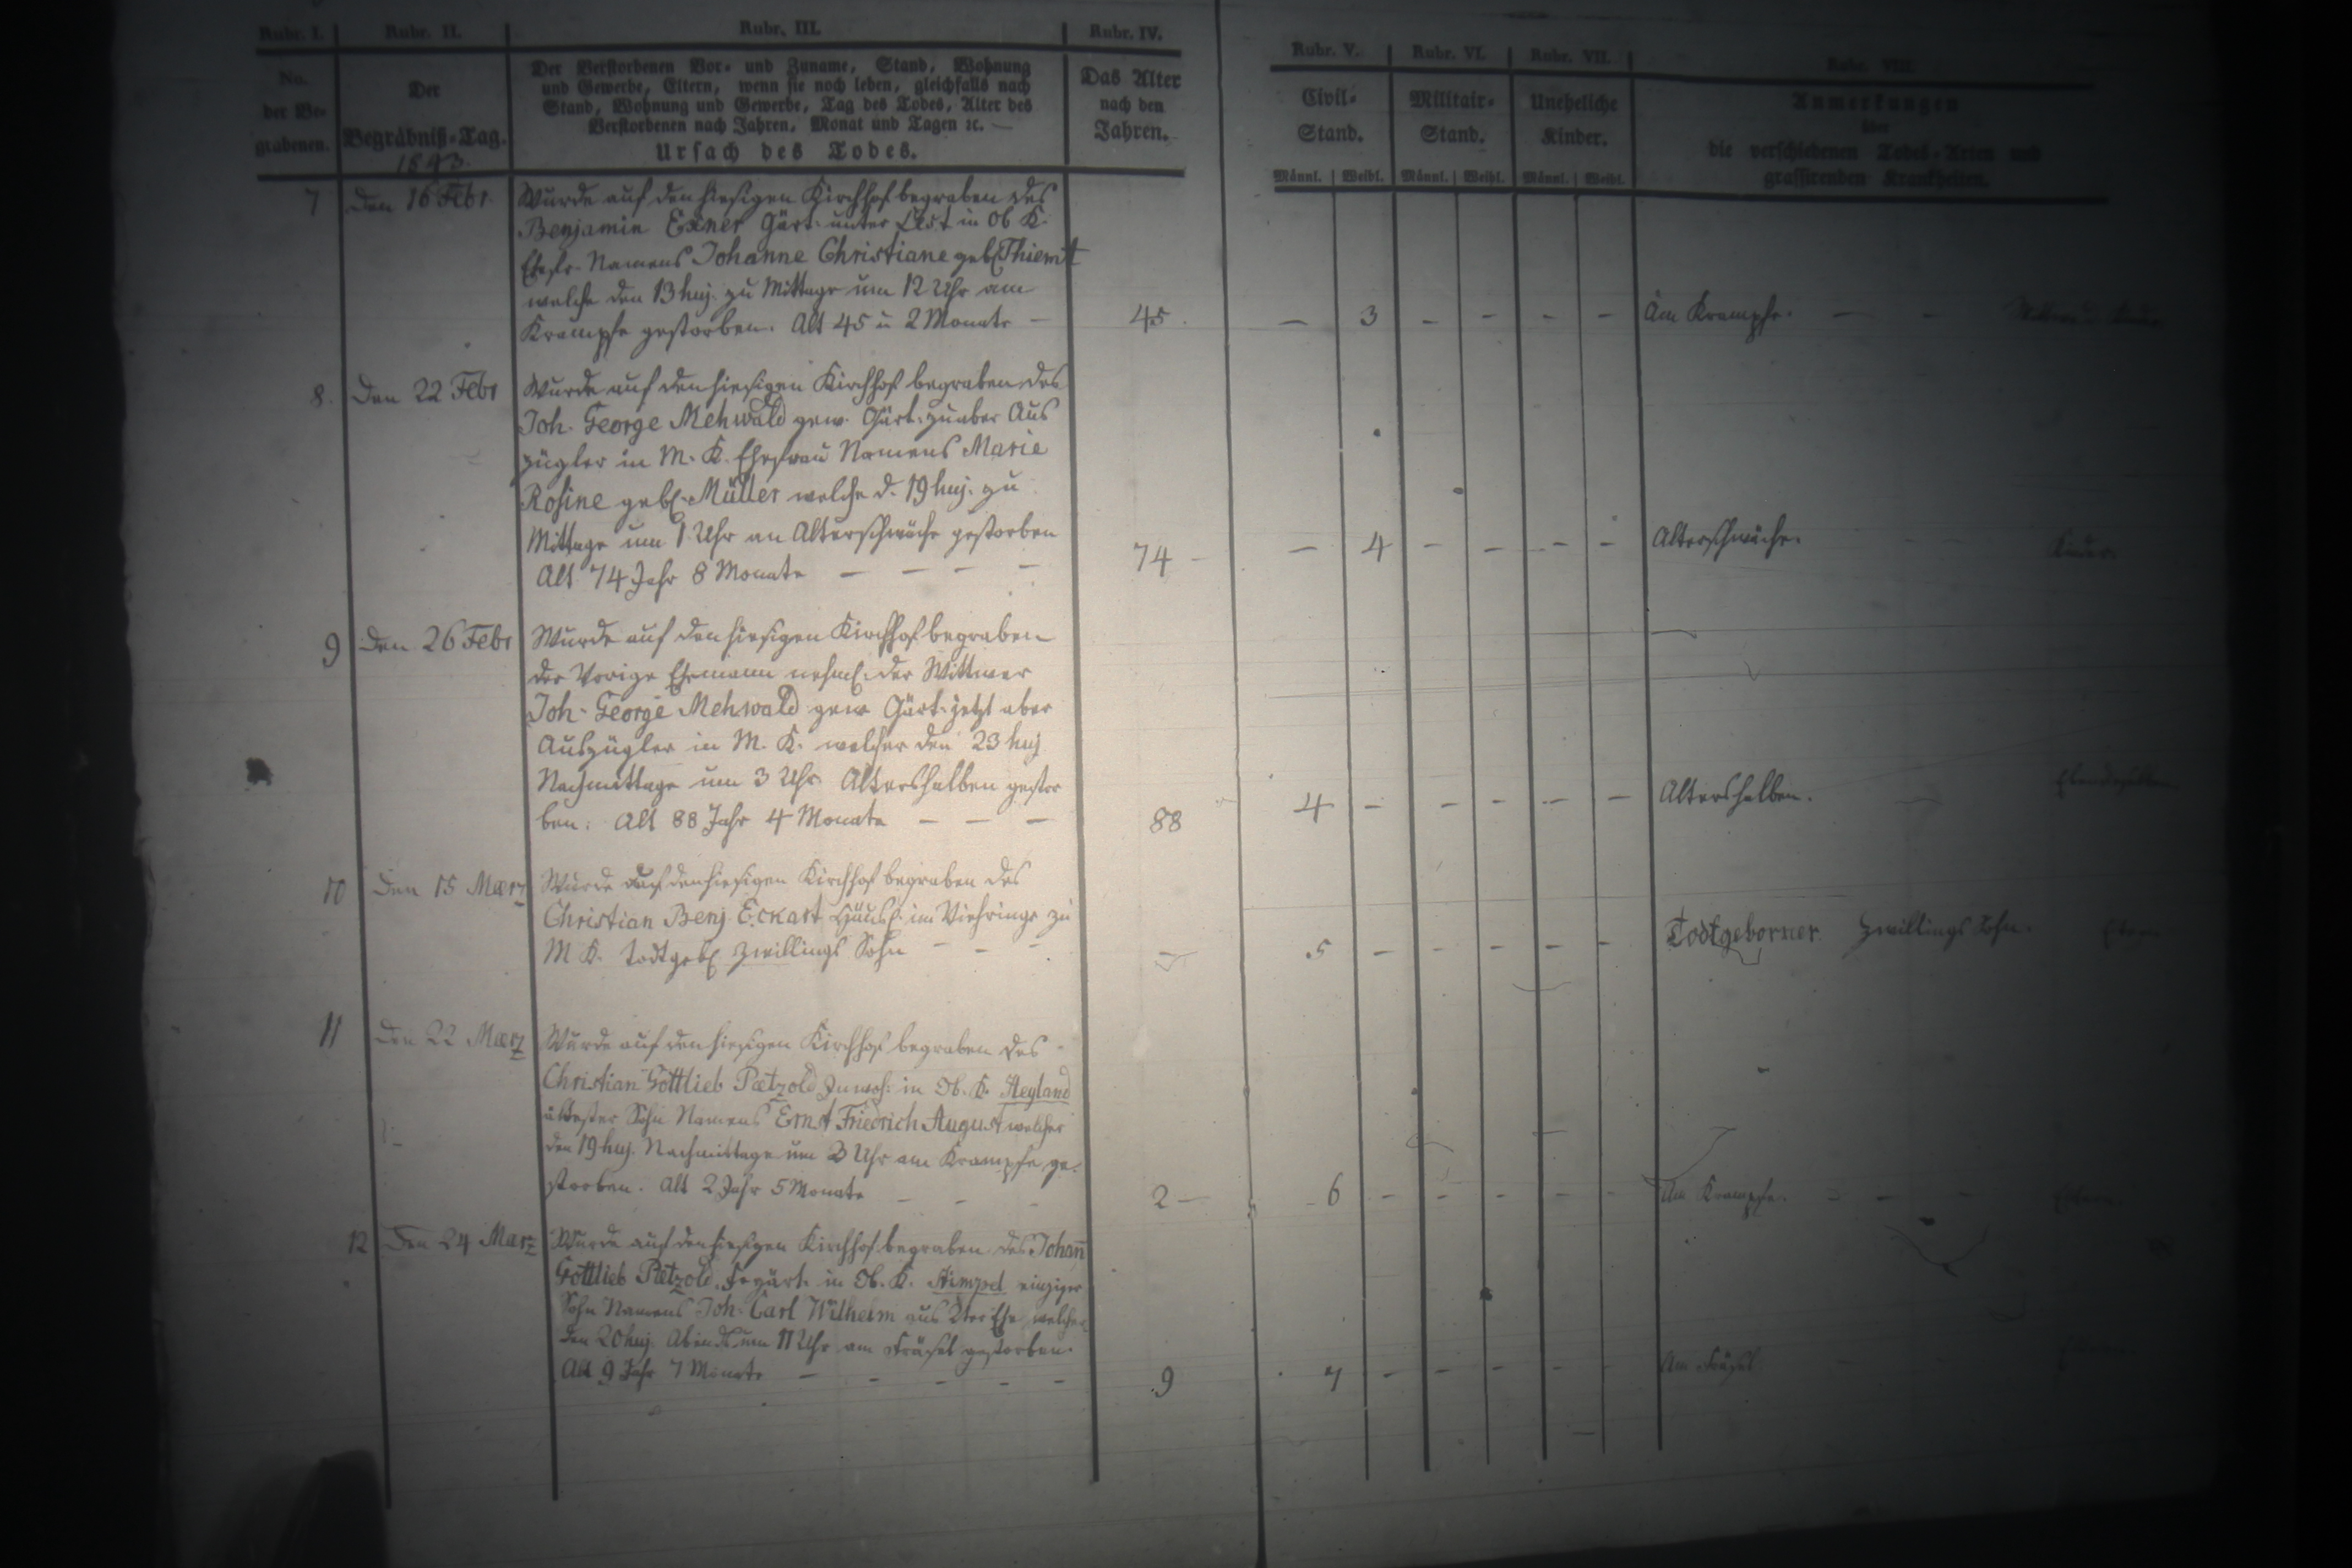 Rubr. I. Rubr. II. Rubr. III. Rubr. IV. Rubr. V. Rubr. VI. Rubr. VII. Rubr. VIII.
No. der Begrabenen.
Der Begräbniß-Tag.
1843.
Der Verstorbenen Vor- und Zuname, Stand, Wohnung
und Gewerbe, Eltern, wenn sie noch leben, gleichfalls nach
Stand, Wohnung und Gewerbe, Tag des Todes, Alter des
Verstorbenen nach Jahren, Monat und Tagen ꝛc. —
Ursach des Todes.
Das Alter
nach den
Jahren.
Civil-
Stand.
Militair-
Stand.
Uneheliche
Kinder.
Anmerkungen
über
die verschiedenen Todes-Arten und
grassirenden Krankheiten.
Männl. Weibl. Männl. Weibl. Männl. Weibl.
7 Den 16 Febr.
Wurde auf den hiesigen Kirchhof begraben des
Benjamin Exner Gärt. unter in Ob K.
Ehefr. Namens Johanne Christiane geb. Thiemt
welche den 13 huj. zu Mittage um 12 Uhr am
Krampfe gestorben. Alt 45 u 2 Monate —
45. — 3 - - - - Am Krampfe. — -
8. Den 22 Febr
Wurde auf den hiesigen Kirchhof begraben des
Joh. George Mehwald gew. Gärt. aber Aus
zügler in M. K. Ehefrau Namens Marie
Rosine geb. Müller welche d. 19 huj. zu
Mittage um 1 Uhr an Alterschwäche gestorben
Alt 74 Jahr 8 Monate — — — —
74 - — 4 - - - - Alterschwäche.
9 Den 26 Febr
Wurde auf den hiesigen Kirchhof begraben
der Vorige Ehemann der Wittwer
Joh. George Mehwald gew Gärt. jetzt aber
Auszügler in M. K. welcher den 23 huj
Nachmittage um 3 Uhr Altershalben gestor
ben. Alt 88 Jahr 4 Monate — — —
88 4 - - - - - Altershalben.
10 Den 15 Maerz
Wurde auf den hiesigen Kirchhof begraben des
Christian Benj. Eckart Häusl. im Viehringe zu
M K. todtgeb. Zwillings Sohn - - -
— 5 - - - - - Todtgeborner Zwillings Sohn.
11 Den 22 Maerz
Wurde auf den hiesigen Kirchhof begraben des
Christian Gottlieb Pætzold Inwoh: in Ob. K.
ältester Sohn Namens Ernst Friedrich August welcher
den 19 huj. Nachmittage um 3 Uhr am Krampfe ge-
storben. Alt 2 Jahr 5 Monate - - -
2 — 6 - - - - - Am Krampfe.
12 Den 24 Marz
Wurde auf den hiesigen Kirchhof begraben des Johañ
Gottlieb Pætzold in Ob. K. einziger
Sohn Namens Joh. Carl Wilhelm aus 2ter Ehe welcher
den 20 huj. Abends um 11 Uhr am gestorben.
Alt 9 Jahr 7 Monate — - - - -
9 7 - - - - - Am